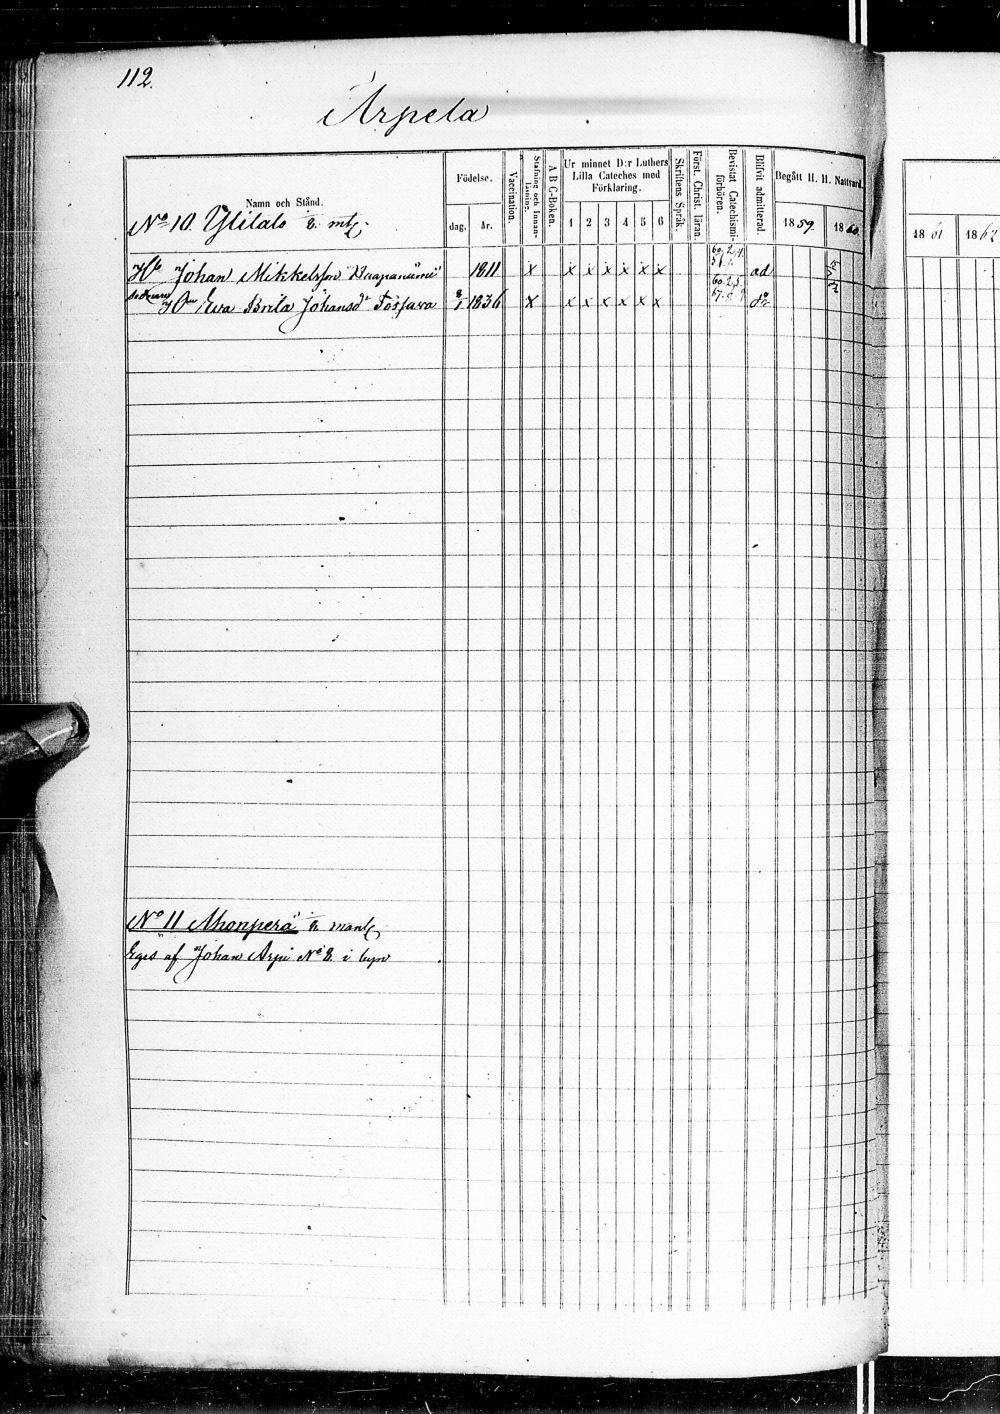 112.
Arpela
Namn och Stånd.
Födelse.
dag.
år.
Vaccination.
Stafning och Innan-läsning.
A B C-Boken.
Ur minnet D:r Luthers
Lilla Cateches med
Förklaring.
1 2 3 4 5 6
Skriftens Språk.
Först. Christ. läran.
Bevistat Catechismi-förhören.
Blifvit admitterad.
Begått H. H. Nattvard.
1859.
1860.
1861
1862
No 10. Ylitalo mtl.
Hb Johan Mikkelsson 1811 x x x x x x x ad
Eva Brita Johansdr 1836 x x x x x x x do
No 11 Ahonperä mantl
Eges af Johan Arpi No 8 i byn